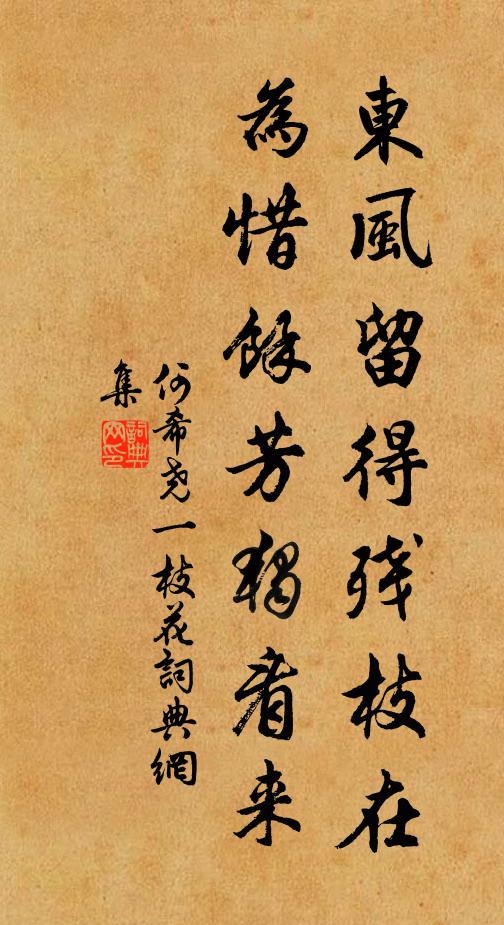 東風留得残枝在
為惜餘芳獨看来
何希尧一枝花詞典網
集
詞典
网印